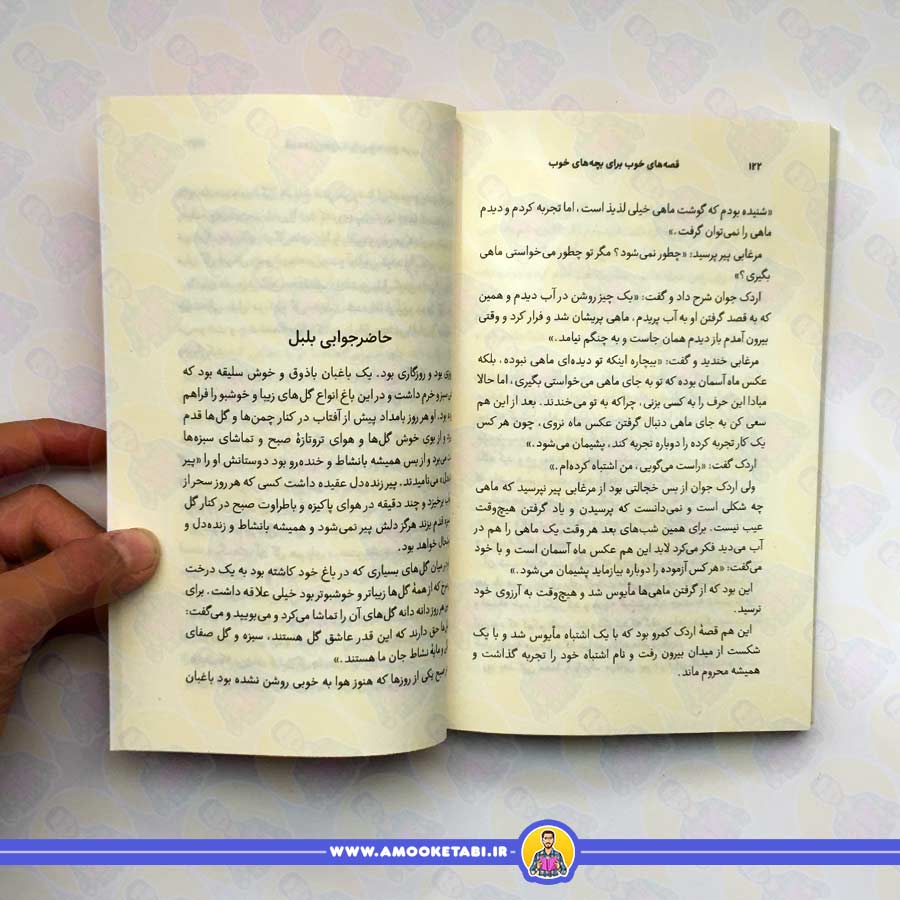 ۱۲۲
قصه‌های خوب برای بچه‌های خوب
«شنیده بودم که گوشت ماهی خیلی لذیذ است، اما تجربه کردم و دیدم
ماهی را نمی‌توان گرفت.»
مرغابی پیر پرسید: «چطور نمی‌شود؟ مگر تو چطور می‌خواستی ماهی
بگیری؟»
اردک جوان شرح داد و گفت: «یک چیز روشن در آب دیدم و همین
که به قصد گرفتن او به آب پریدم، ماهی پریشان شد و فرار کرد و وقتی
بیرون آمدم باز دیدم همان جاست و به چنگم نیامد.»
مرغابی خندید و گفت: «بیچاره اینکه تو دیده‌ای ماهی نبوده، بلکه
عکس ماه آسمان بوده که تو به جای ماهی می‌خواستی بگیری، اما حالا
مبادا این حرف را به کسی بزنی، چراکه به تو می‌خندند. بعد از این هم
سعی کن به جای ماهی دنبال گرفتن عکس ماه نروی، چون هر کس
یک کار تجربه کرده را دوباره تجربه کند، پشیمان می‌شود.»
اردک گفت: «راست می‌گویی، من اشتباه کرده‌ام.»
ولی اردک جوان از بس خجالتی بود از مرغابی پیر نپرسید که ماهی
چه شکلی است و نمی‌دانست که پرسیدن و یاد گرفتن هیچ‌وقت
عیب نیست. برای همین شب‌های بعد هر وقت یک ماهی را هم در
آب می‌دید فکر می‌کرد لابد این هم عکس ماه آسمان است و با خود
می‌گفت: «هر کس آزموده را دوباره بیازماید پشیمان می‌شود.»
این بود که از گرفتن ماهی‌ها مأیوس شد و هیچ‌وقت به آرزوی خود
نرسید.
این هم قصهٔ اردک کمرو بود که با یک اشتباه مأیوس شد و با یک
شکست از میدان بیرون رفت و نام اشتباه خود را تجربه گذاشت و
همیشه محروم ماند.
حاضرجوابی بلبل
بود و روزگاری بود. یک باغبان باذوق و خوش سلیقه بود که
سبز و خرم داشت و در این باغ انواع گل‌های زیبا و خوشبو را فراهم
بود. او هر روز بامداد پیش از آفتاب در کنار چمن‌ها و گل‌ها قدم
و از بوی خوش گل‌ها و هوای تروتازهٔ صبح و تماشای سبزه‌ها
می‌برد و از بس همیشه بانشاط و خنده‌رو بود دوستانش او را «پیر
می‌نامیدند. پیر زنده‌دل عقیده داشت کسی که هر روز سحر از
برخیزد و چند دقیقه در هوای پاکیزه و باطراوت صبح در کنار گل
قدم بزند هرگز دلش پیر نمی‌شود و همیشه بانشاط و زنده‌دل و
خواهد بود.
میان گل‌های بسیاری که در باغ خود کاشته بود به یک درخت
که از همهٔ گل‌ها زیباتر و خوشبوتر بود خیلی علاقه داشت. برای
هر روز دانه دانه گل‌های آن را تماشا می‌کرد و می‌بویید و می‌گفت:
حق دارند که این قدر عاشق گل هستند، سبزه و گل صفای
و مایهٔ نشاط جان ما هستند.»
صبح یکی از روزها که هنوز هوا به خوبی روشن نشده بود باغبان
WWW.AMOOKETABI.IR